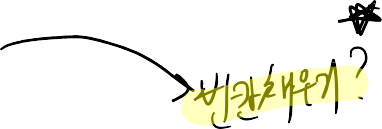 빈칸채우기?